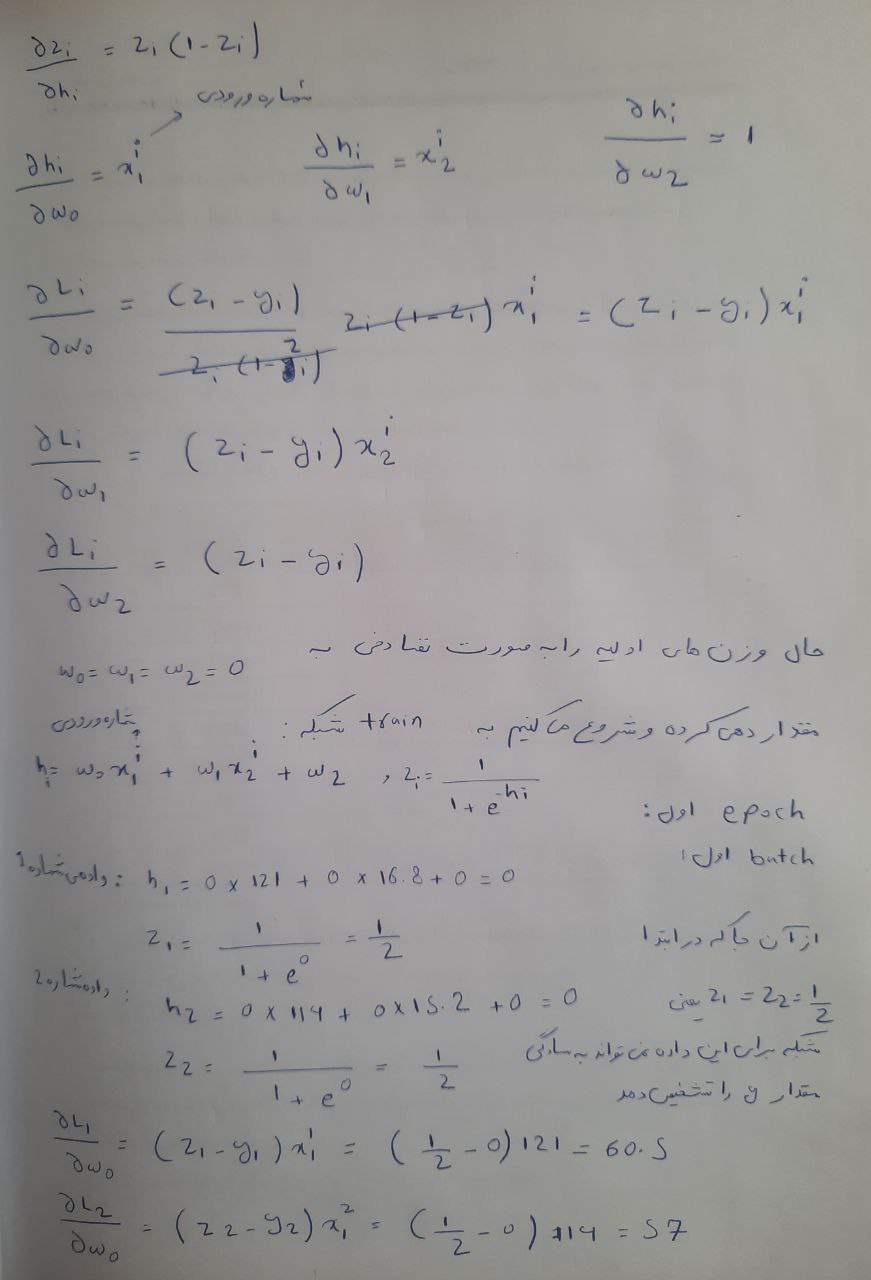 ∂zi/∂hi = zi (1 - zi)
شماره ورودی
∂hi/∂w0 = x1^i    ∂hi/∂w1 = x2^i    ∂hi/∂w2 = 1
∂Li/∂w0 = (zi - yi) / zi (1-zi) zi (1-zi) x1^i = (zi - yi) x1^i
∂Li/∂w1 = (zi - yi) x2^i
∂Li/∂w2 = (zi - yi)
حال وزن های اولیه را به صورت تصادفی به w0 = w1 = w2 = 0
مقداردهی کرده و شروع می کنیم به train شبکه:
شماره ورودی
hi = w0 x1^i + w1 x2^i + w2 , zi = 1 / 1 + e^-hi
epoch اول:
batch اول:
داده ی شماره 1: h1 = 0 x 121 + 0 x 16.8 + 0 = 0
z1 = 1 / 1 + e^0 = 1/2    از آن جا که در ابتدا
داده شماره 2: h2 = 0 x 114 + 0 x 15.2 + 0 = 0    z1 = z2 = 1/2 یعنی
z2 = 1 / 1 + e^0 = 1/2    شبکه برای این داده نمی تواند به سادگی
مقدار y را تشخیص دهد
∂L1/∂w0 = (z1 - y1) x1^1 = (1/2 - 0) 121 = 60.5
∂L2/∂w0 = (z2 - y2) x1^2 = (1/2 - 0) 114 = 57